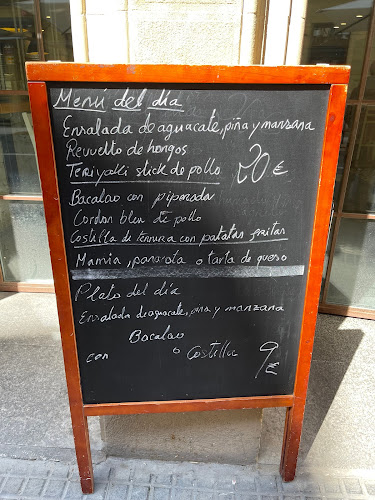 Menú del día
Ensalada de aguacate, piña y manzana
Revuelto de hongos
Teriyaki stick de pollo
20 €
Bacalao con piperrada
Cordon bleu de pollo
Costilla de ternera con patatas fritas
Mamia, panacota o tarta de queso
Plato del día
Ensalada de aguacate, piña y manzana
Bacalao
con o Costilla 9 €